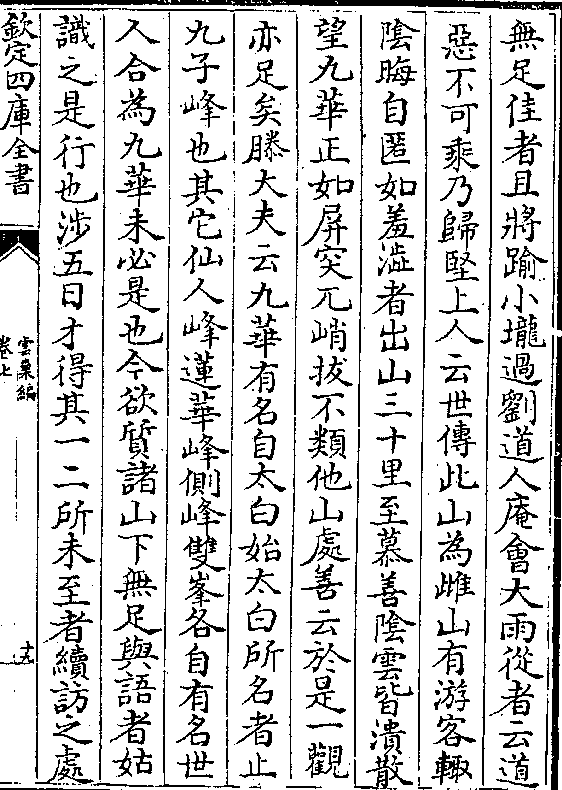 無足佳者且將踰小壠過劉道人庵會大雨從者云道
惡不可乘乃歸堅上人云世傳此山為雌山有游客輙
陰晦自匿如羞澁者出山三十里至慕善陰雲皆潰散
望九華正如屏突兀峭拔不類他山處善云於是一觀
亦足矣滕大夫云九華有名自太白始太白所名者止
九子峰也其它仙人峰蓮華峰側峰雙峯各自有名世
人合為九華未必是也今欲質諸山下無足與語者姑
識之是行也涉五日才得其一二所未至者續訪之處
欽定四庫全書
雲巢編
卷七